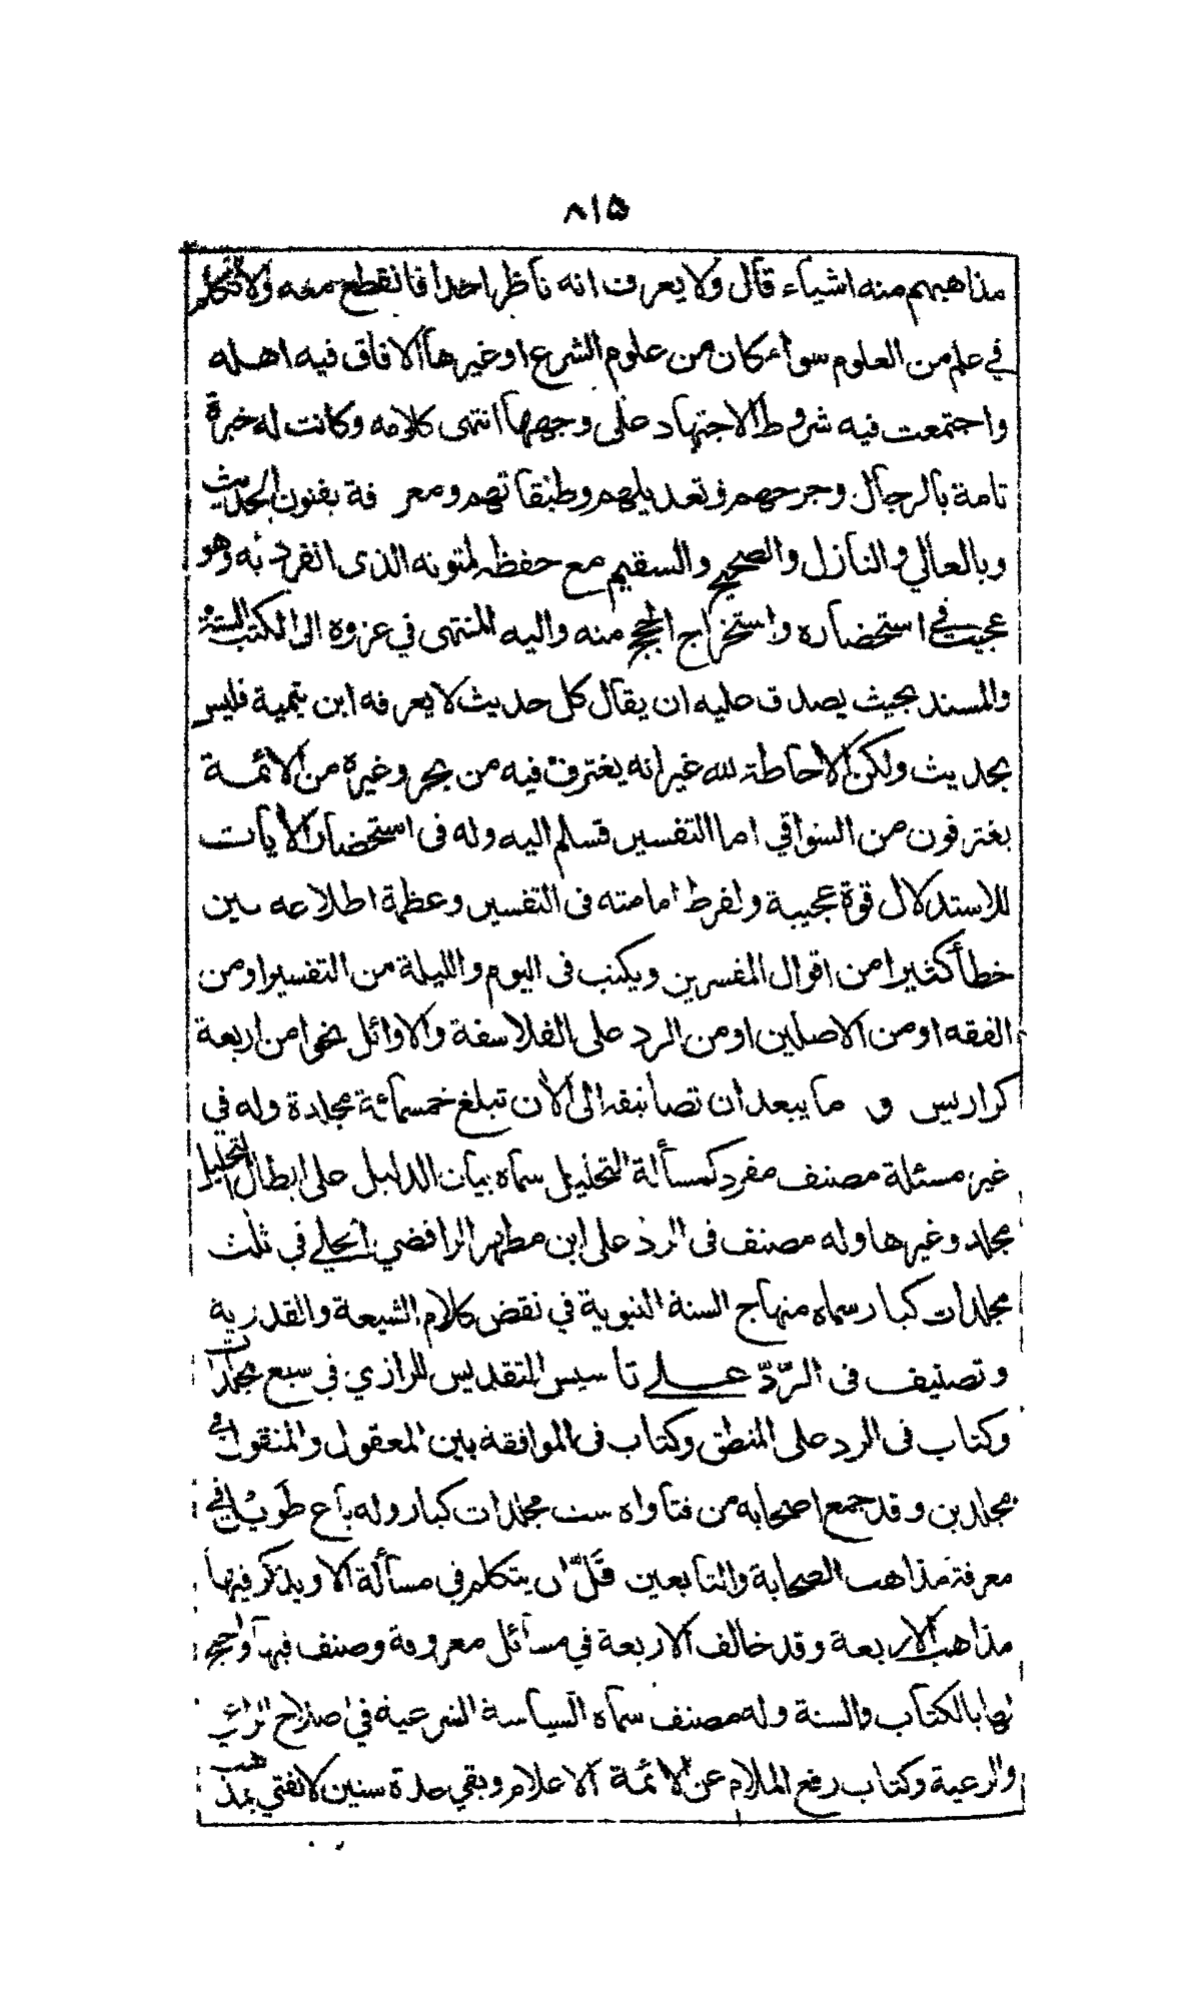 ٨١٥
مذاهبهم منه اشياء قال ولا يعرف انه ناظر احدا فانقطع معه ولا تكلم
في علم من العلوم سواء كان من علوم الشرع او غيرها الا فاق فيه اهله
واجتمعت فيه شروط الاجتهاد على وجهها انتهى كلامه وكانت له خبرة
تامة بالرجال وجرحهم وتعديلهم وطبقاتهم ومعرفة بفنون الحديث
وبالعالي والنازل والصحيح والسقيم مع حفظه لمتونه الذى انفرد به وهو
عجيب في استحضاره واستخراج الحجج منه واليه المنتهى في عزوه الى الكتب الستة
والمسند بحيث يصدق عليه ان يقال كل حديث لا يعرفه ابن تيمية فليس
بحديث ولكن الاحاطة لله غير انه يغترف فيه من بحر وغيره من الائمة
يغترفون من السواقي اما التفسير فسلم اليه وله فى استحضار الأيات
للاستدلال قوة عجيبة ولفرط امامته فى التفسير وعظمة اطلاعه يبين
خطأ كثيرا من اقوال المفسرين ويكتب فى اليوم والليلة من التفسير او من
الفقه او من الاصلين او من الرد على الفلاسفة والاوائل نحوا من اربعة
كراريس و ما يبعد ان تصانيفه الى الأن تبلغ خمسمائة مجلدة وله في
غير مسئلة مصنف مفرد كمسألة التحليل سماه بيان الدليل على ابطال التحليل
مجلد وغيرها وله مصنف فى الرد على ابن مطهر الرافضي الحلي في ثلث
مجلدات كبار سماه منهاج السنة النبوية في نقض كلام الشيعة والقدرية
وتصنيف فى الردّ على تأسيس التقديس للرازي في سبع مجلدات
وكتاب فى الرد على المنطق وكتاب فى الموافقة بين المعقول والمنقول في
مجلدين وقد جمع اصحابه من فتاواه ست مجلدات كبار وله باع طويل في
معرفة مذاهب الصحابة والتابعين قلّ ان يتكلم في مسألة الا ويذكر فيها
مذاهب الاربعة وقد خالف الاربعة في مسائل معروفة وصنف فيها واحتج
لها بالكتاب والسنة وله مصنف سماه السياسة الشرعية في اصلاح الراعي
والرعية وكتاب رفع الملام عن الائمة الاعلام وبقي عدة سنين لا يفتي بمذهب